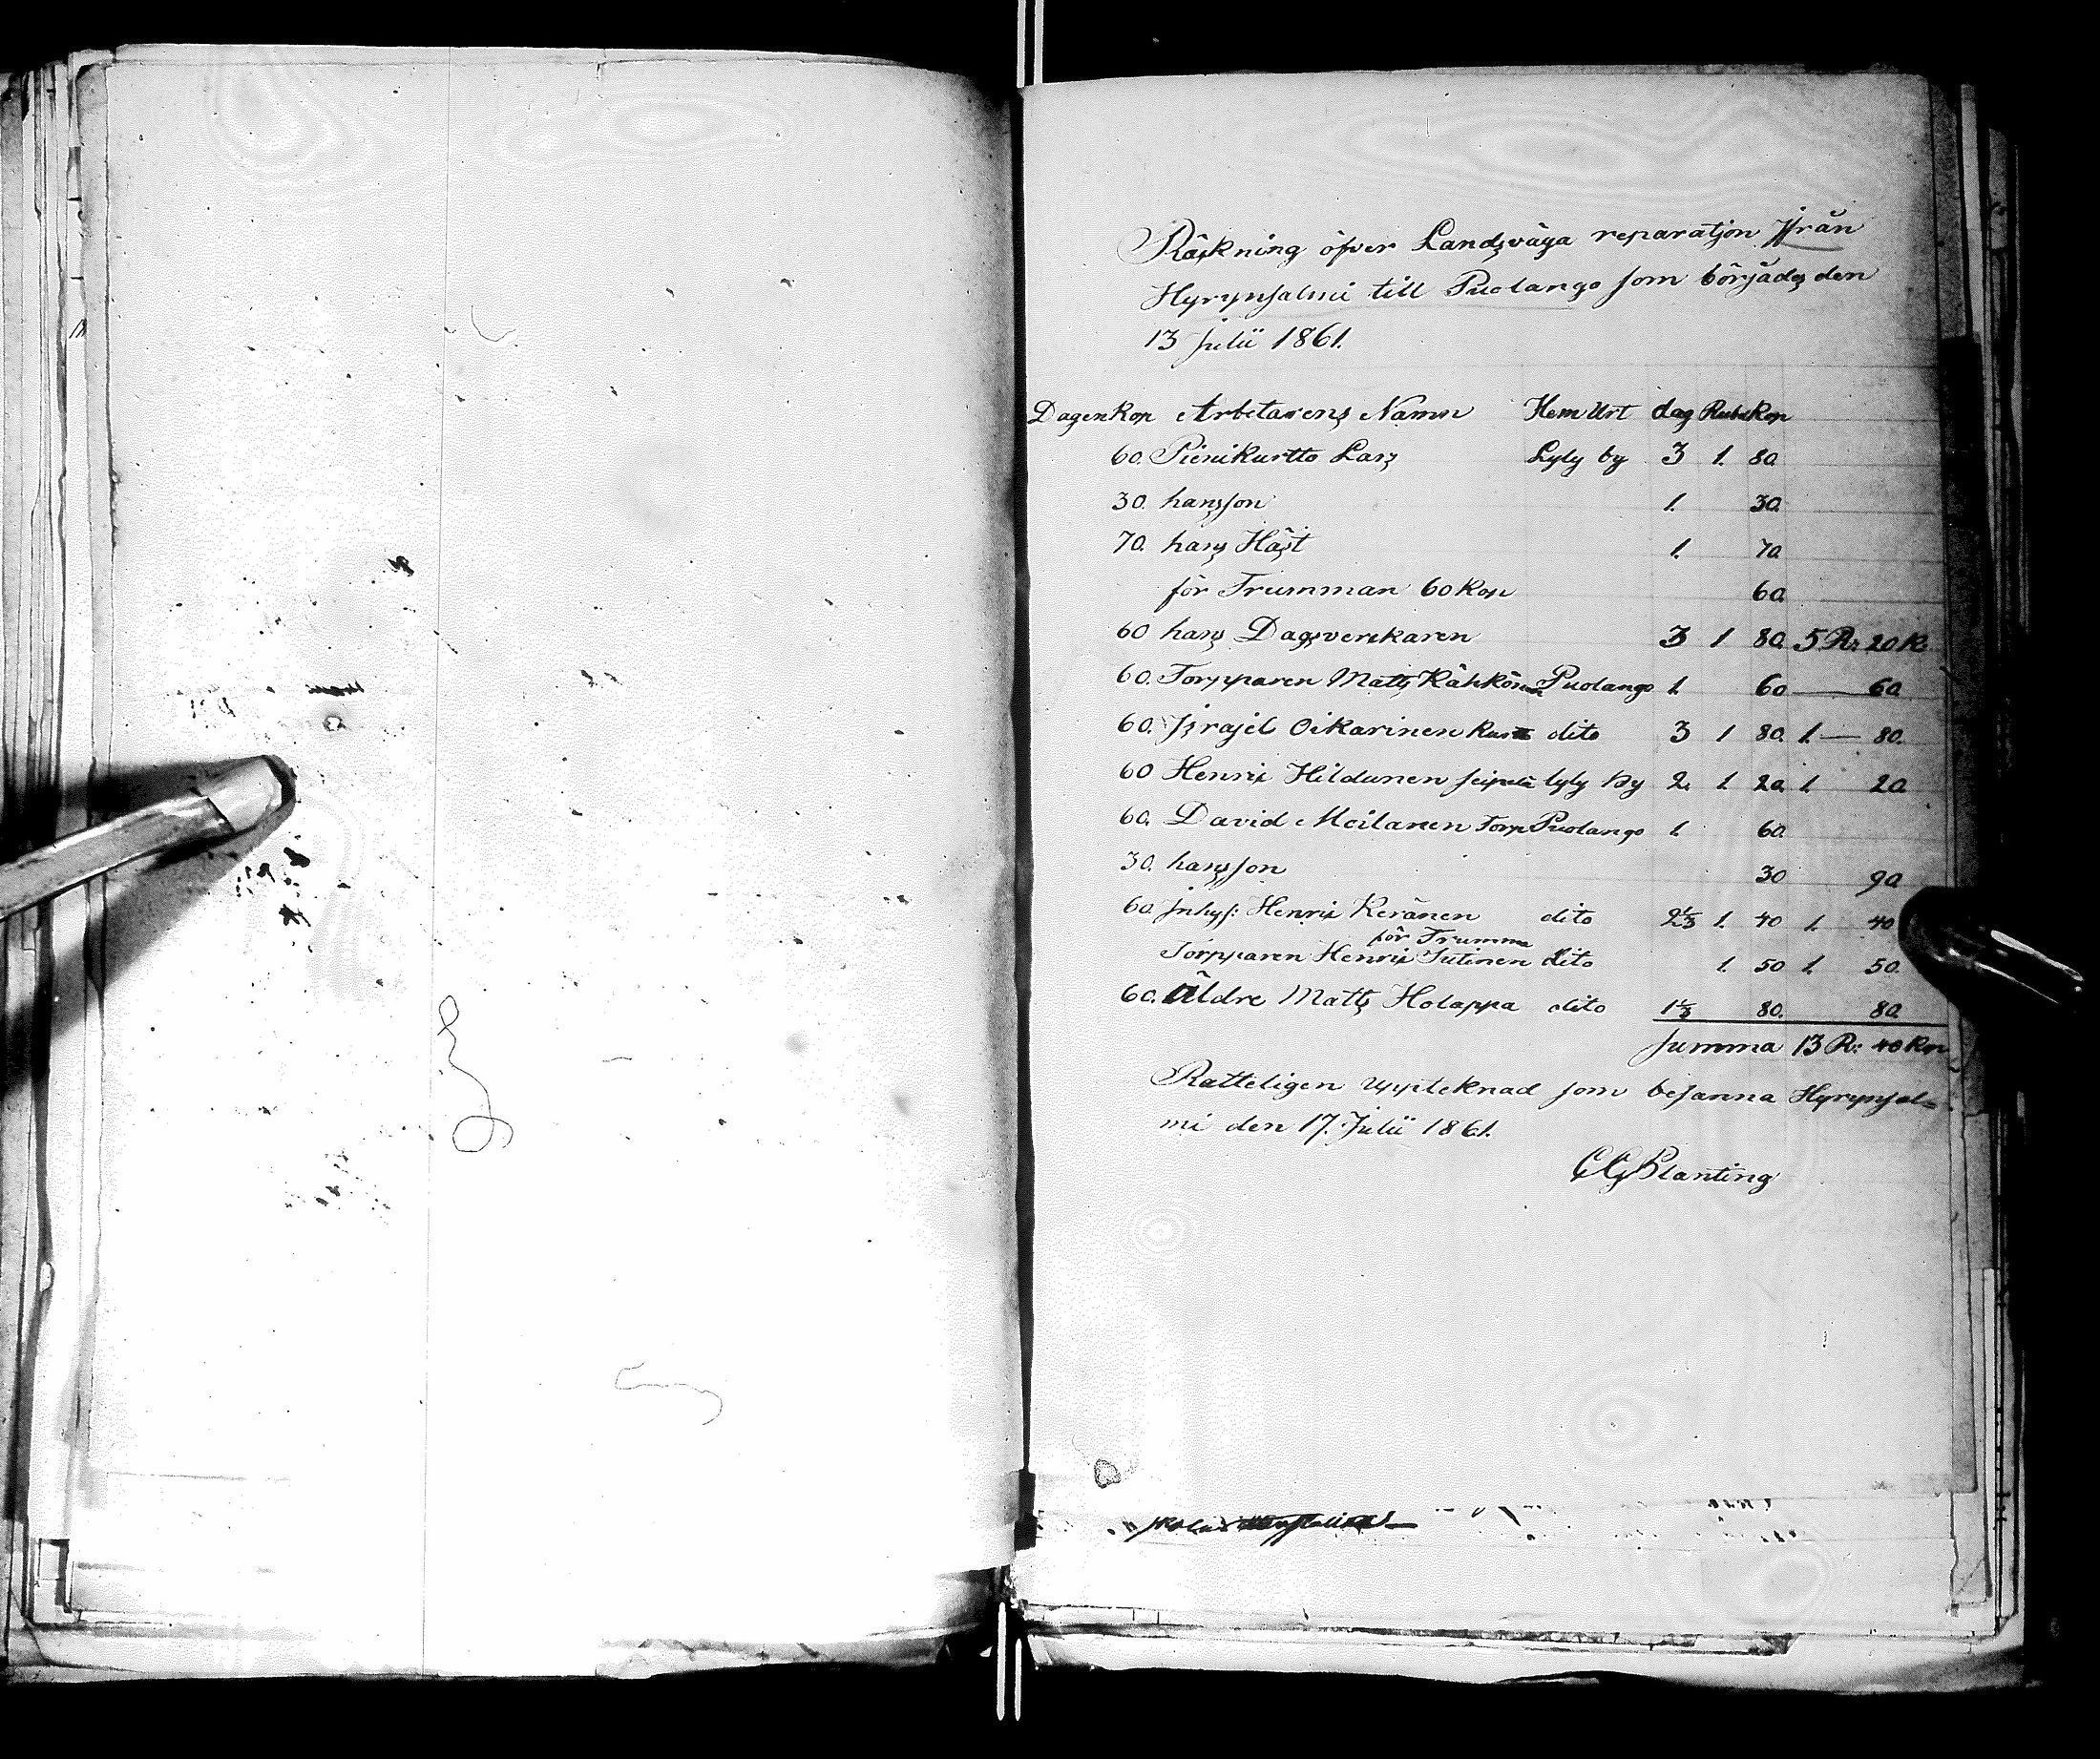 Räkning öfver Landsväga reparatjon Ifrån
Hyrynsalmi till Puolango som börjades den
13 Julii 1861.
Dagen Kop Arbetarens Namn Hem Urt dag Rub Kop
60. Pienikurtto Lars Lyly by 3 1. 80.
30. hansson 1. 30.
70. hans Häst 1. 70
för Trumman 60 Kop 60
60 hans Dagsverkaren 3 1 80. 5 R: 20 K:
60. Torpparen Matts Kähkönen Puolango 1. 60 — 60
60. Israjel Oikarinen dito 3 1 80. 1. — 80.
60 Henrik Hildunen lyly by 2. 1. 20. 1. 20
60. David Moilanen Torp Puolango 1. 60.
30. hansson 30 90
60 Inhys: Henrik Keränen dito 2 1/3 1. 40 1. 40
för Trumma
Torpparen Henrik Jutinen dito 1. 50 1. 50.
60. Äldre Matts Holappa dito 1 1/3 80. 80
Summa 13 R: 40 Kop
Ratteligen uppteknad som besanna Hyrynsal=
mi den 17. Julii 1861.
C G Planting